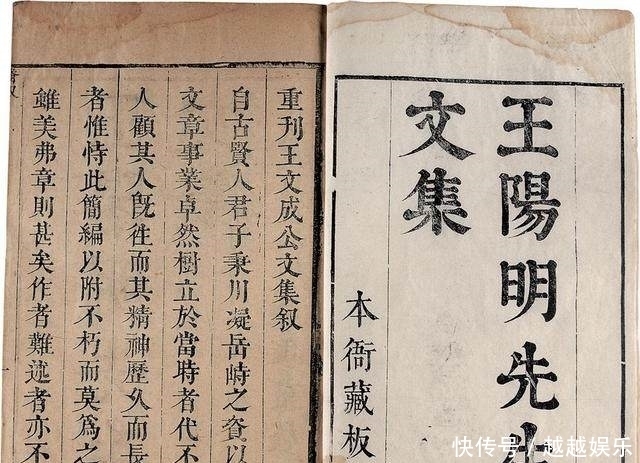 王陽明先生
文集
本衙藏板
重刊王文成公文集叙
自古賢人君子秉川凝岳峙之資以
文章事業卓然樹立於當時者代不
人顧其人旣往而其精神歷久而
者惟恃此簡編以附不朽而莫爲之
雖美弗章則甚矣作者難述者亦不
快传号/越越娱乐